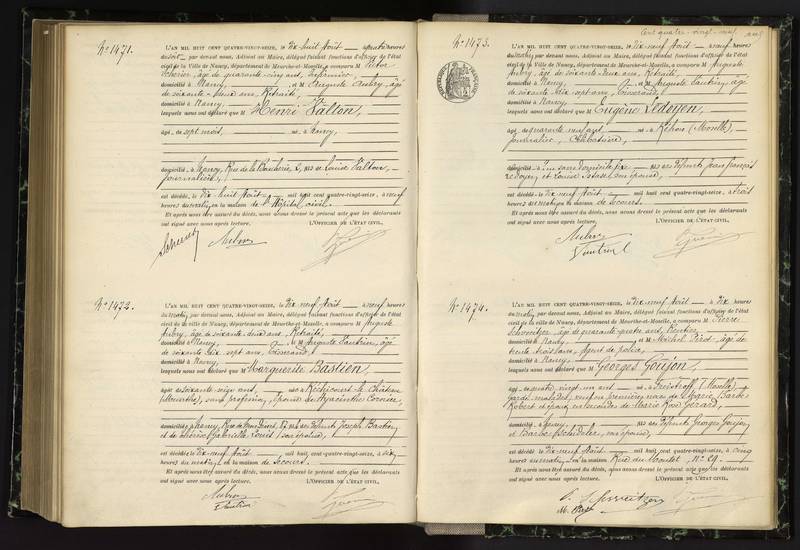 Cent quatre-vingt-neuf
N° 1471.
L'AN MIL HUIT CENT QUATRE-VINGT-SEIZE, le Dix huit Août — à quatre heures
du soir, par devant nous, Adjoint au Maire, délégué faisant fonctions d'officier de l'état
civil de la Ville de Nancy, département de Meurthe-et-Moselle, a comparu M Victor
âgé de quarante cinq ans,
domicilié à Nancy, et M Auguste Aubry, âgé
de soixante-deux ans, Retraité,
domicilié à Nancy,
lesquels nous ont déclaré que M Henri Valton,
âgé de sept mois, né à Nancy,
domicilié à Nancy, Rue de la Boucherie, 2, fils de Louise Valton,
journalière,
est décédé, le Dix-huit Août mil huit cent quatre-vingt-seize, à neuf
heures du matin, en la maison de l'Hôpital civil.
Et après nous être assuré du décès, nous avons dressé le présent acte que les déclarants
ont signé avec nous après lecture. L'OFFICIER DE L'ÉTAT CIVIL,
Aubry
N° 1472.
L'AN MIL HUIT CENT QUATRE-VINGT-SEIZE, le Dix-neuf Août — à neuf heures
du matin, par devant nous, Adjoint au Maire, délégué faisant fonctions d'officier de l'état
civil de la ville de Nancy, département de Meurthe-et-Moselle, a comparu M Auguste
Aubry, âgé de soixante-deux ans, Retraité,
domicilié à Nancy, et M Auguste Vautrin, âgé
de soixante dix sept ans, Tisserand,
domicilié à Nancy,
lesquels nous ont déclaré que M Marguerite Bastien,
âgée de soixante-cinq ans, née à Réchicourt-le-Château
(Meurthe), sans profession, épouse de Hyacinthe
domiciliée à Nancy, Rue de fille des défunts Joseph Bastien
et de Thérèse Gabrielle son épouse,
est décédée, le Dix-neuf Août mil huit cent quatre-vingt-seize, à
heures du matin, en la maison de Secours.
Et après nous être assuré du décès, nous avons dressé le présent acte que les déclarants
ont signé avec nous après lecture. L'OFFICIER DE L'ÉTAT CIVIL,
Aubry
Vautrin
N° 1473.
L'AN MIL HUIT CENT QUATRE-VINGT-SEIZE, le Dix-neuf Août — à neuf heures
du matin, par devant nous, Adjoint au Maire, délégué faisant fonctions d'officier de l'état
civil de la Ville de Nancy, département de Meurthe-et-Moselle, a comparu M Auguste
Aubry, âgé de soixante-deux ans, Retraité,
domicilié à Nancy, et M Auguste Vautrin, âgé
de soixante dix-sept ans, Tisserand,
domicilié à Nancy,
lesquels nous ont déclaré que M Eugène Ledoyen,
âgé de quarante neuf ans, né à Réhon (Moselle),
journalier, Célibataire,
domicilié à sans domicile fixe, fils des défunts Jean François
Ledoyen, et son épouse,
est décédé, le Dix-neuf Août mil huit cent quatre-vingt-seize, à trois
heures du matin, en la maison de secours.
Et après nous être assuré du décès, nous avons dressé le présent acte que les déclarants
ont signé avec nous après lecture. L'OFFICIER DE L'ÉTAT CIVIL,
Aubry
Vautrin
N° 1474.
L'AN MIL HUIT CENT QUATRE-VINGT-SEIZE, le Dix-neuf Août — à Dix heures
du matin, par devant nous, Adjoint au Maire, délégué faisant fonctions d'officier de l'état
civil de la ville de Nancy, département de Meurthe-et-Moselle, a comparu M Pierre
âgé de quarante-quatre ans, Rentier,
domicilié à Nancy et M Michel âgé de
trente trois ans, Agent de police,
domicilié à Nancy,
lesquels nous ont déclaré que M Georges Goujon,
âgé de quatre vingt un ans né à Freistroff (Moselle),
garde-malades, veuf en premières noces de Marie Barbe
Robert et époux en secondes de Marie Rose Gérard,
domicilié à Nancy, fils des défunts Georges Goujon,
et Barbe son épouse,
est décédé, le Dix-neuf Août mil huit cent quatre-vingt-seize, à cinq
heures du matin, en la maison Rue du N° 29.
Et après nous être assuré du décès, nous avons dressé le présent acte que les déclarants
ont signé avec nous après lecture. L'OFFICIER DE L'ÉTAT CIVIL,